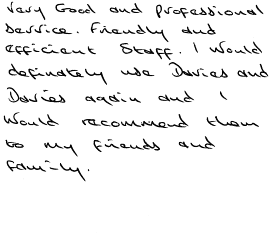 Very Good and professional
service. Friendly and
efficient Staff. I would
definately use Davies and
Davies again and I
would recommend them
to my friends and
family.